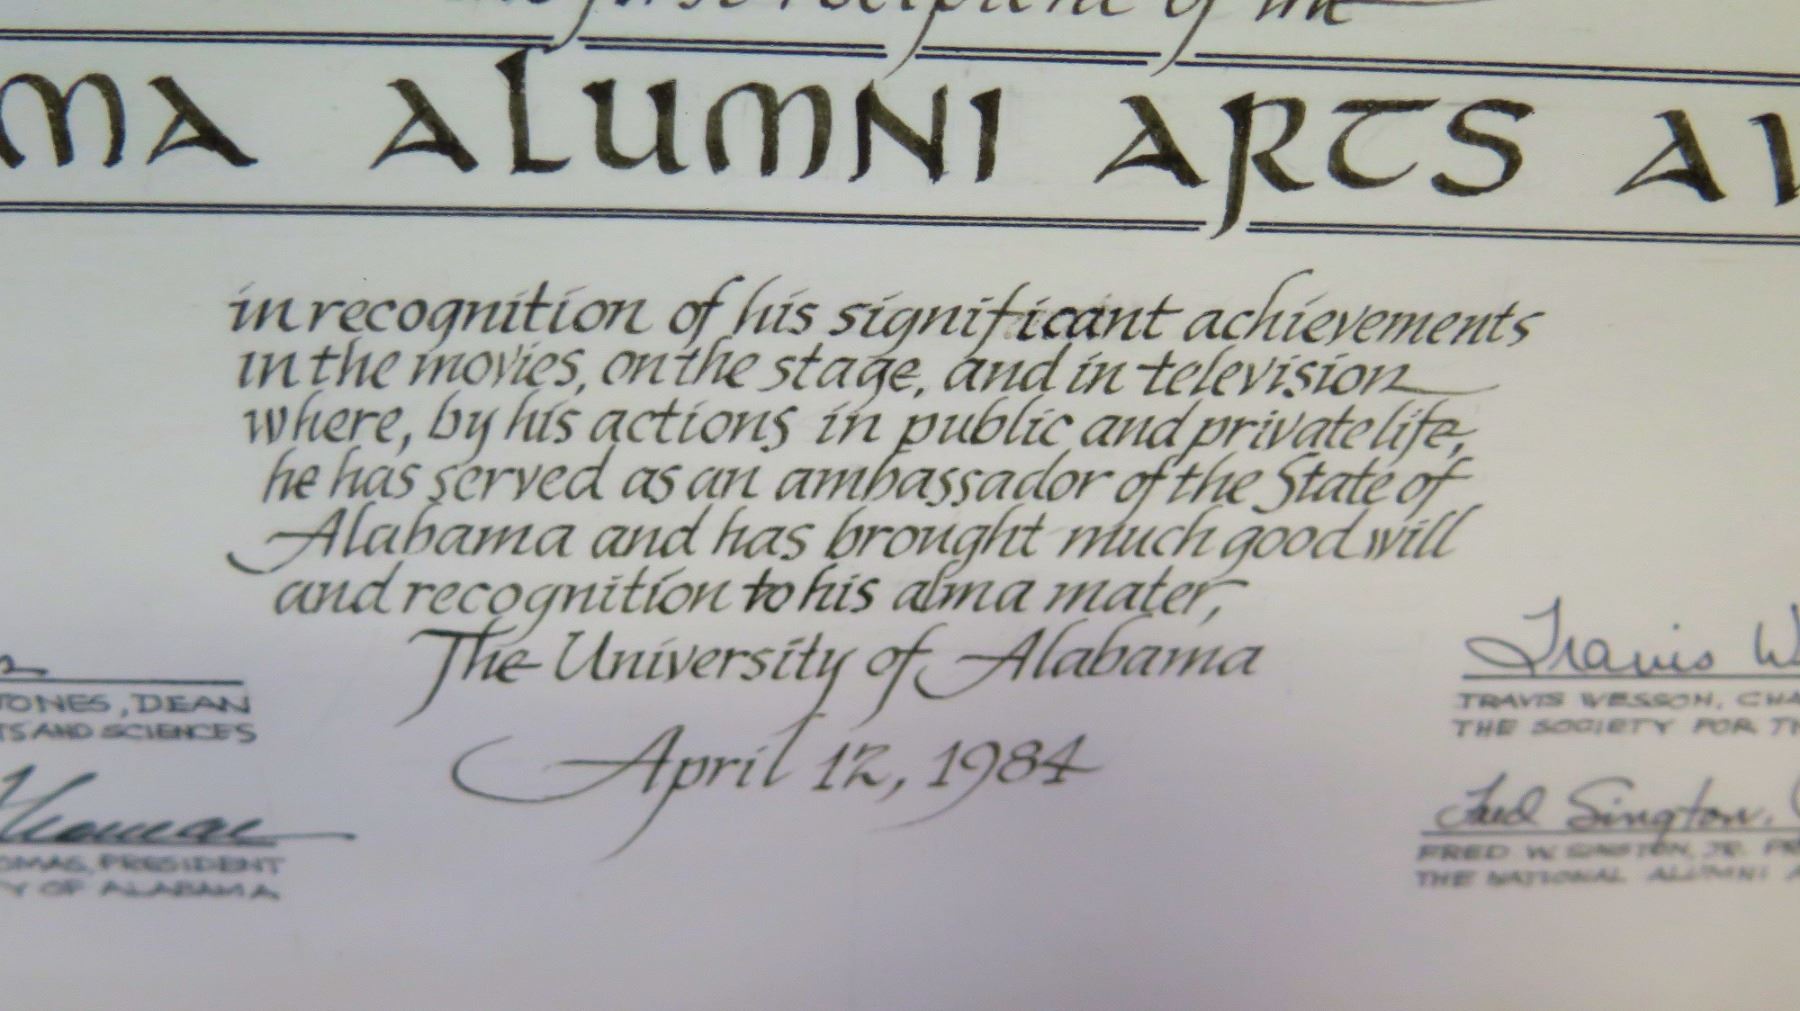 first recipient of the
MA ALUMNI ARTS
in recognition of his significant achievements
in the movies, on the stage, and in television
where, by his actions in public and private life,
he has served as an ambassador of the State of
Alabama and has brought much good will
and recognition to his alma mater,
The University of Alabama
April 12, 1984
JONES, DEAN
TS AND SCIENCES
OMAS, PRESIDENT
Y OF ALABAMA
Travis W
TRAVIS WESSON, CHA
THE SOCIETY FOR TH
Fred Sington,
FRED W. SINGTON, JR. PR
THE NATIONAL ALUMNI A